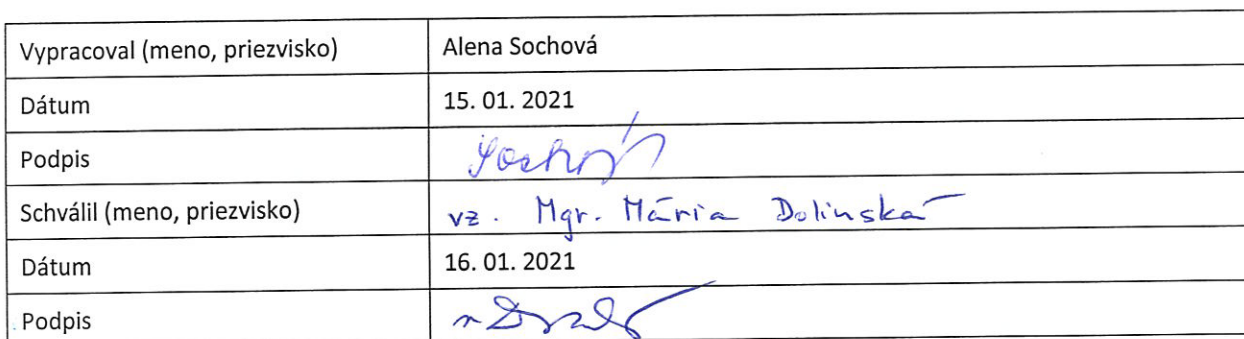 Vypracoval (meno, priezvisko) Alena Sochová
Dátum 15. 01. 2021
Podpis Sochová
Schválil (meno, priezvisko) vz. Mgr. Mária Dolinská
Dátum 16. 01. 2021
Podpis